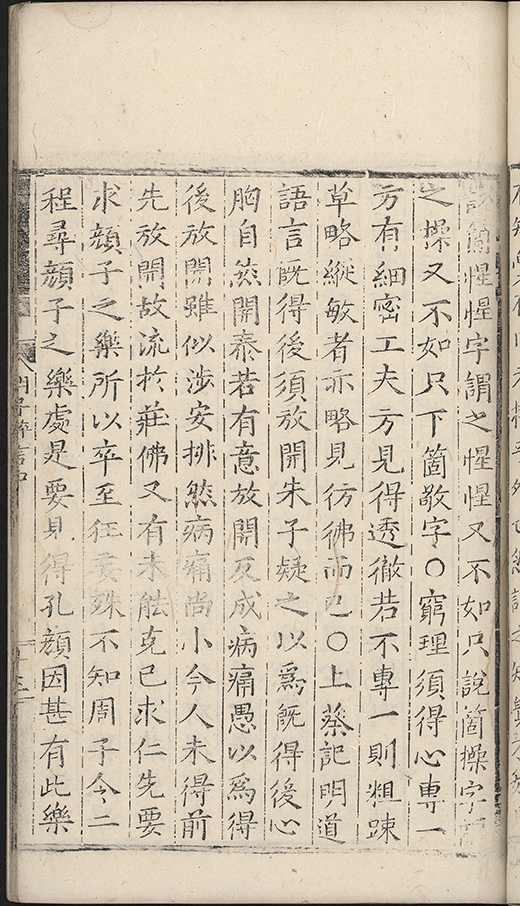 箇惺惺字謂之惺惺又不如只說箇操字
之操又不如只下箇敬字〇窮理須得心專一
方有細密工夫方見得透徹若不專一則粗踈
草略縱敏者亦略見彷彿而已〇上蔡記明道
語言既得後須放開朱子疑之以爲既得後心
胸自然開泰若有意放開反成病痛愚以爲得
後放開雖似涉安排然病痛尚小今人未得前
先放開故流於莊佛又有未能克己求仁先要
求顔子之樂所以卒至狂妄殊不知周子令二
程尋顔子之樂處是要見得孔顔因甚有此樂